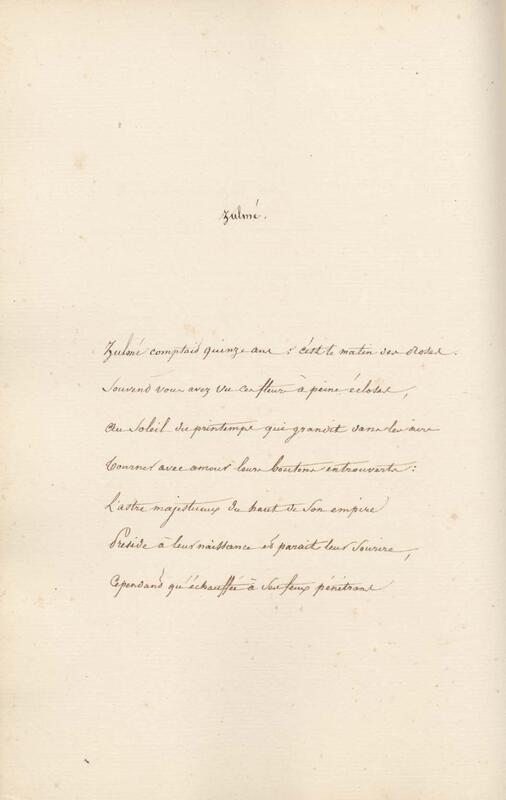 Zulmé.
Zulmé comptait quinze ans : c'est le matin des roses.
Souvent vous avez vu ces fleurs à peine écloses,
Au soleil du printemps qui grandit dans les airs
Tourner avec amour leurs boutons entrouverts :
L'astre majestueux du haut de son empire
Préside à leur naissance et parait leur sourire,
Cependant qu'échauffés à ses feux pénétrans